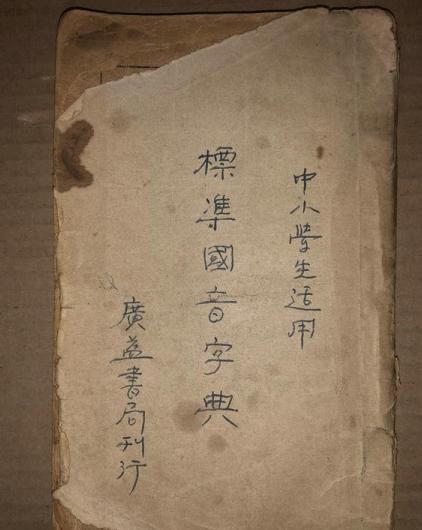 中小學生适用
標準國音字典
廣益書局刊行